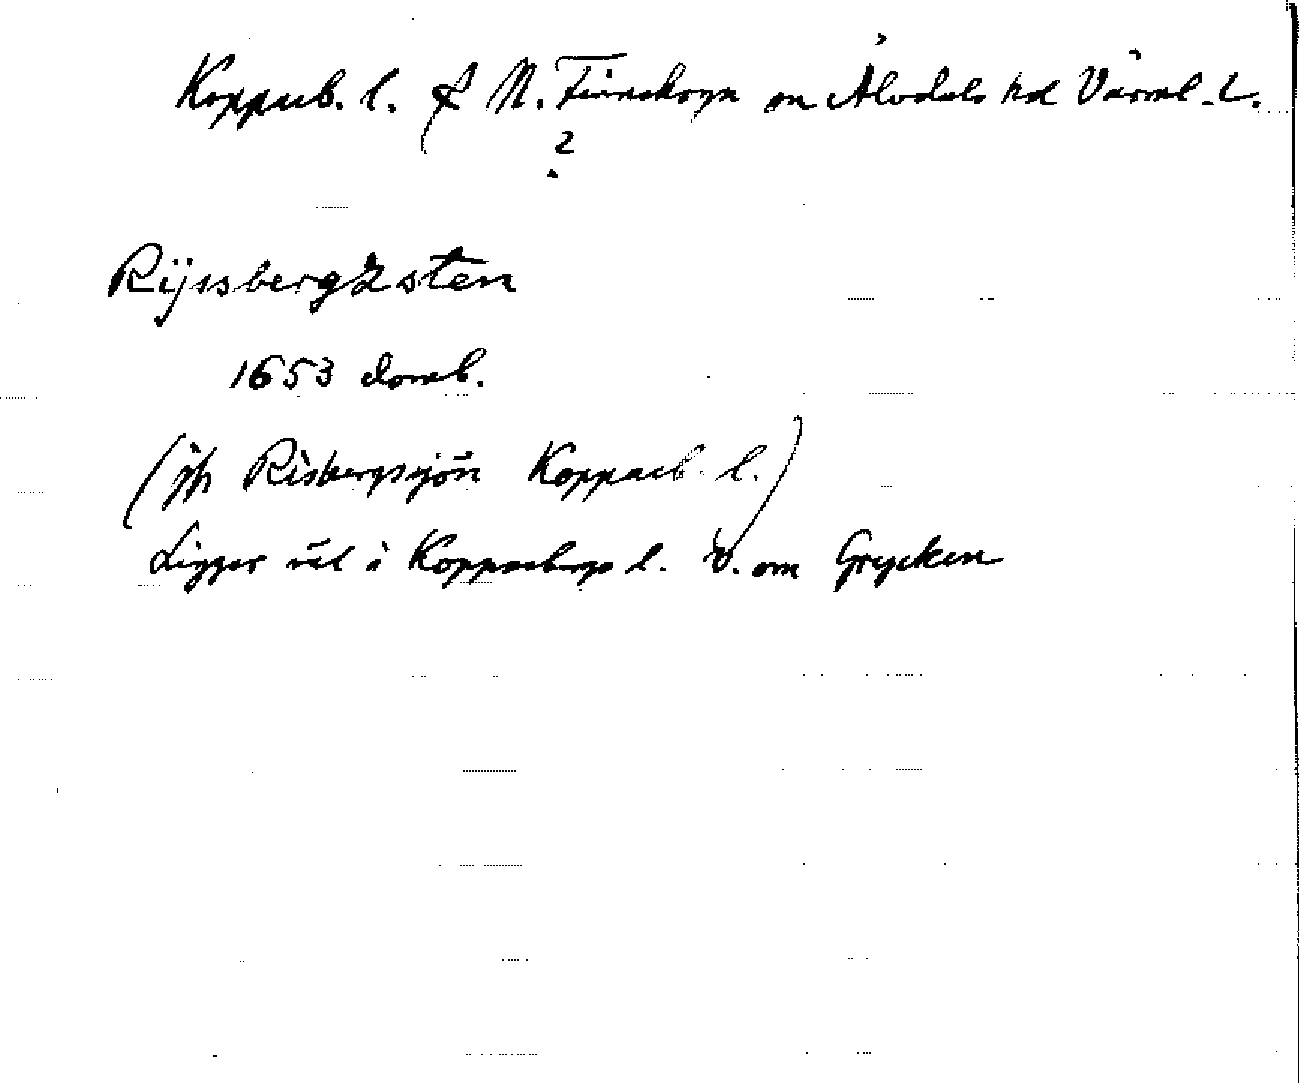 Kopparb. l. f N. Finnskoga sn Älvdals hd Värml. L.
?
Rijssbergzsten
1653 domb.
(jfr Risbergssjön Kopparb. l.)
Ligger väl i Kopparbergs l. V. om Grycken